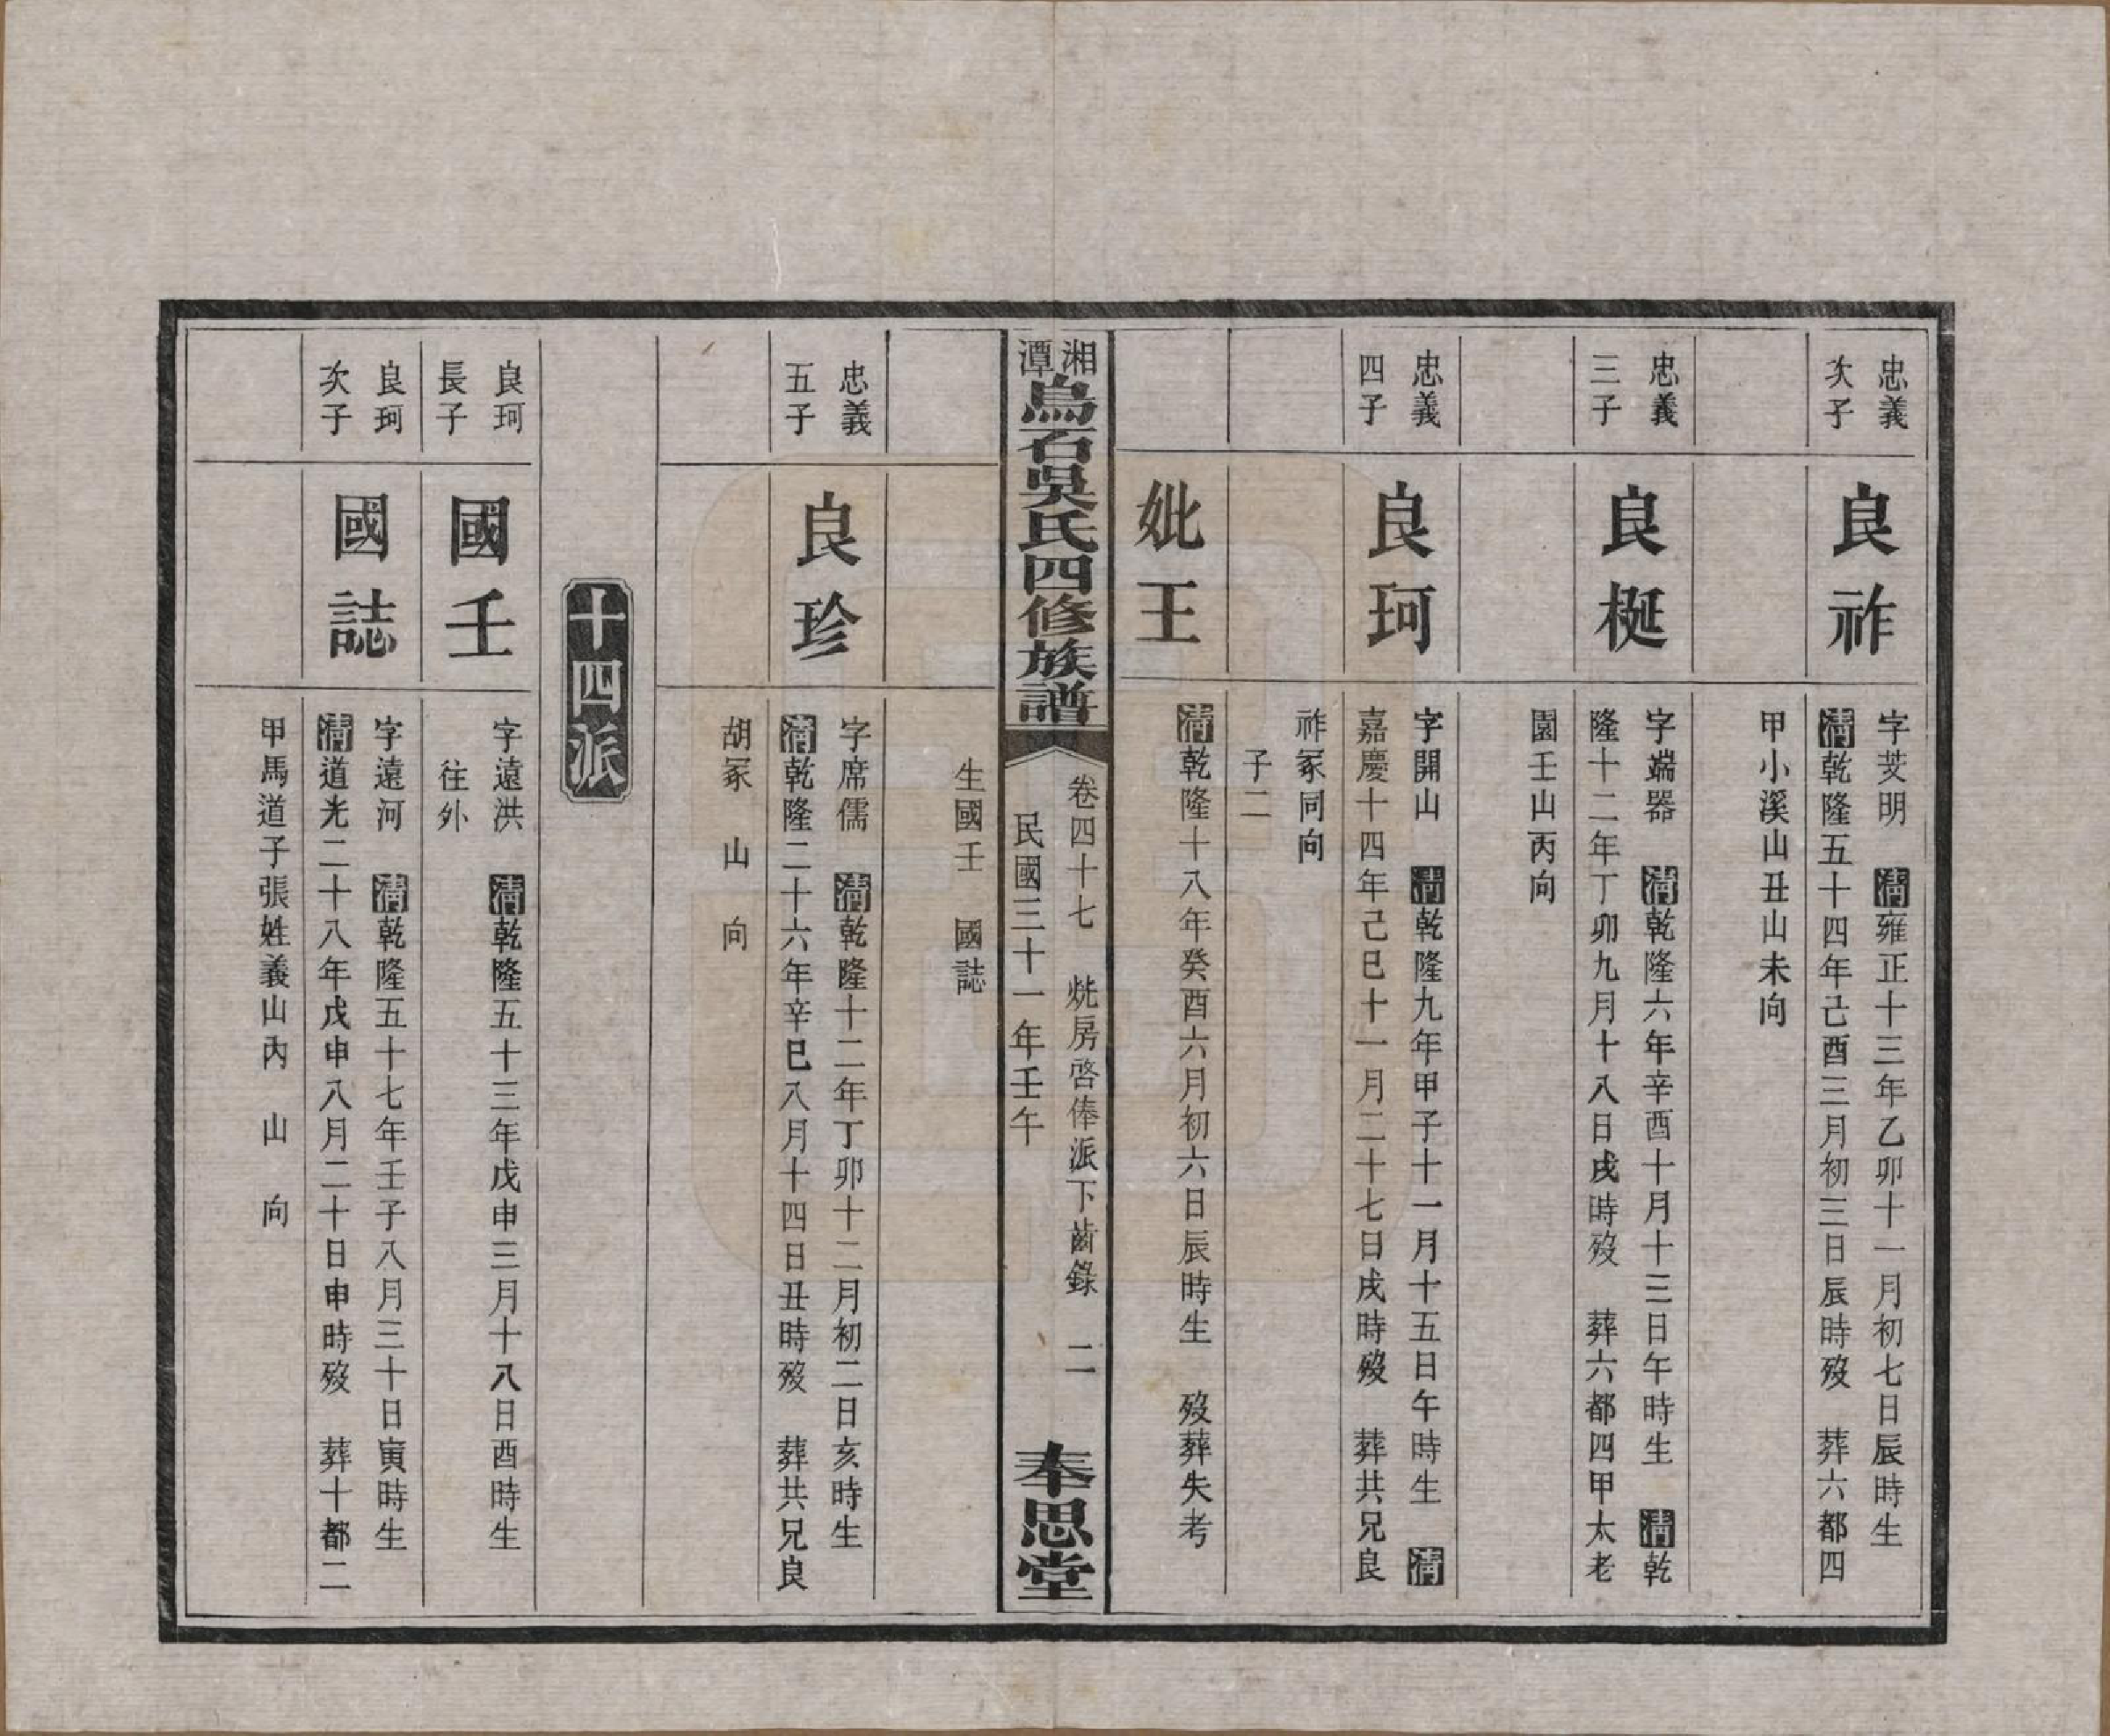 忠義
次子
良祚
字芠明　清雍正十三年乙卯十一月初七日辰時生
清乾隆五十四年己酉三月初三日辰時歿　葬六都四
甲小溪山丑山未向
忠義
三子
良梴
字端器　清乾隆六年辛酉十月十三日午時生　清乾
隆十二年丁卯九月十八日戌時歿　葬六都四甲太老
園壬山丙向
忠義
四子
良珂
字開山　清乾隆九年甲子十一月十五日午時生　清
嘉慶十四年己巳十一月二十七日戌時歿　葬共兄良
祚冢同向
子二
妣王
清乾隆十八年癸酉六月初六日辰時生　歿葬失考
湘潭烏石吳氏四修族譜
卷四十七　烑房啓俸派下齒錄　二
民國三十一年壬午
奉思堂
生國壬　國誌
忠義
五子
良珍
字席儒　清乾隆十二年丁卯十二月初二日亥時生
清乾隆二十六年辛巳八月十四日丑時歿　葬共兄良
胡冢　山　向
十四派
良珂
長子
國壬
字遠洪　清乾隆五十三年戊申三月十八日酉時生
往外
良珂
次子
國誌
字遠河　清乾隆五十七年壬子八月三十日寅時生
清道光二十八年戊申八月二十日申時歿　葬十都二
甲馬道子張姓義山內　山　向